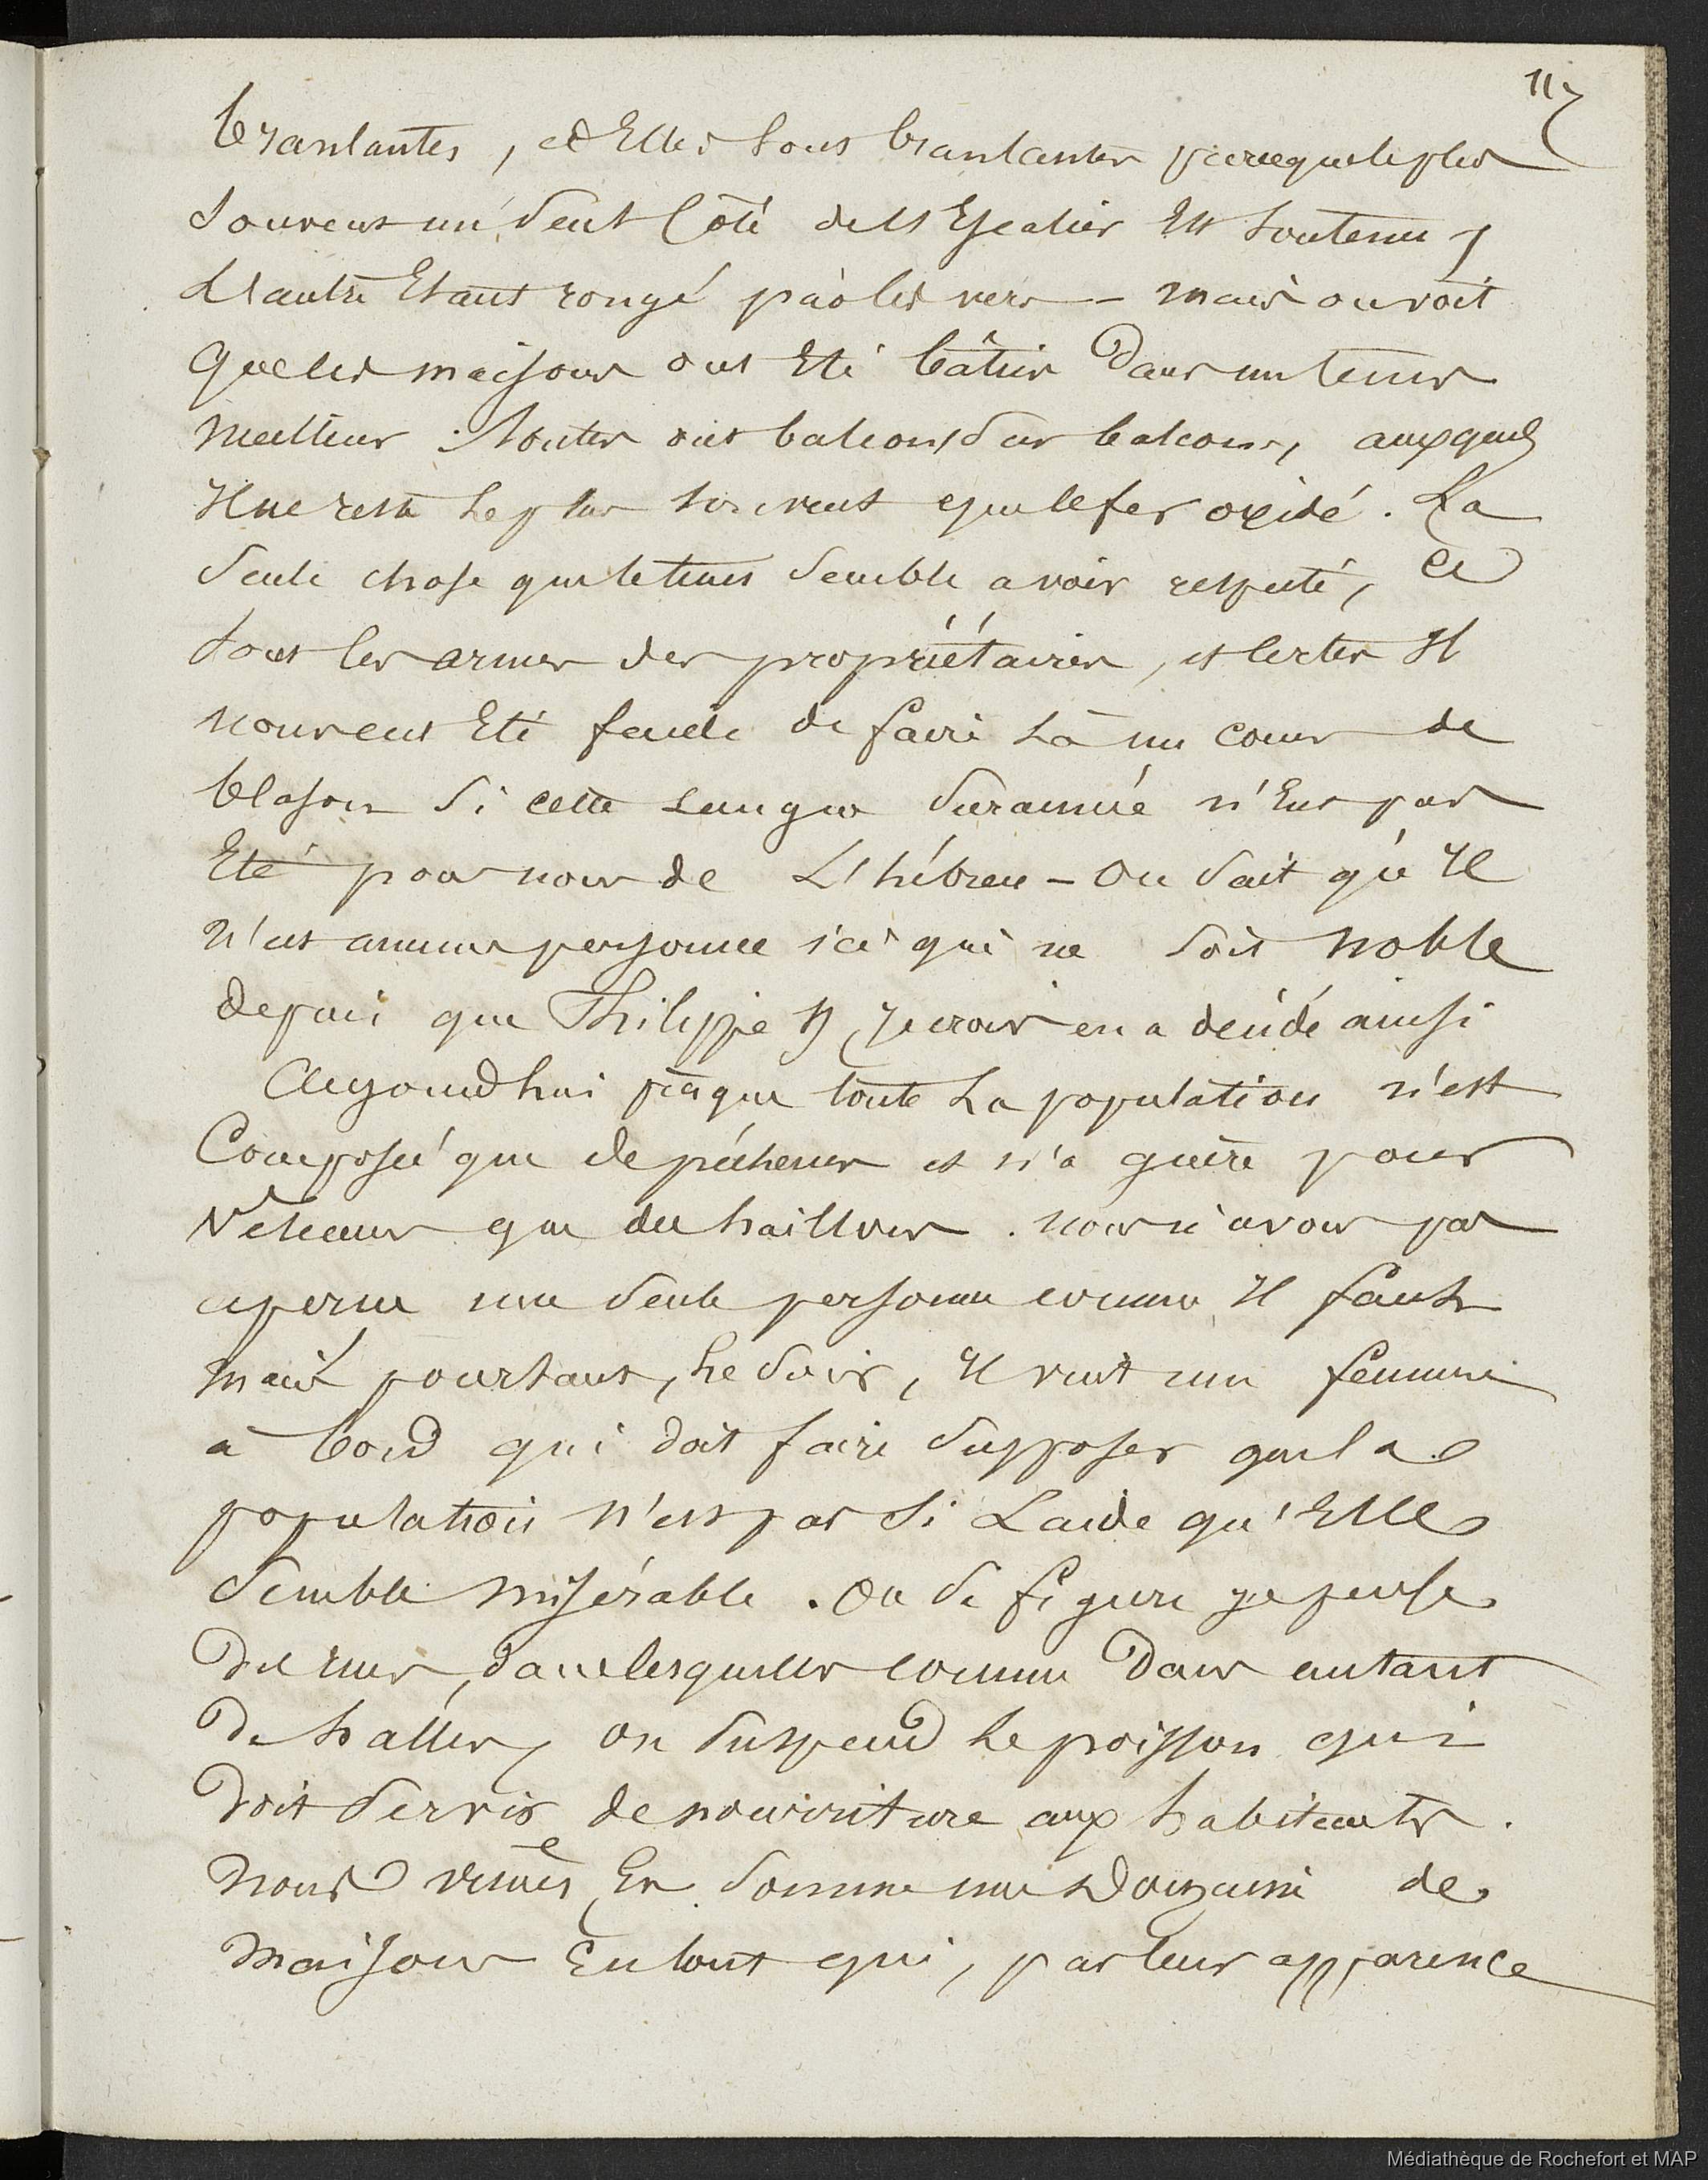 117
branlantes, et Elles sont branlantes parceque le plus
souvent un seul Côté de l'Escalier Est soutenu,
L'autre Etant rongé par les vers – mais on voit
que les maisons ont Eté bâties dans un tems
meilleur. toutes ont balcons sur balcons, auxquels
Il ne reste le plus souvent que le fer oxidé. La
seule chose que le tems semble avoir respecté, Ce
sont les armes des propriétaires, et certes Il
nous eut Eté facile de faire Là un cours de
blason si cette Langue surannée n'Eut pas
Eté pour nous de L'hébreu – On sait qu'Il
n'est personne ici qui ne soit noble
depuis que Philippe II, je crois en a décidé ainsi
Aujourd'hui presque toute La population n'est
Composée que de pêcheurs et n'a guère pour
Vêtements que des haillons. nous n'avons pas
aperçu une seule personne comme Il faut
mais pourtant, Le soir, Il vint une femme
à bord qui doit faire supposer que la
population n'est pas si Laide qu'Elle
semble misérable. On se figure je pense
des rues, dans lesquelles comme dans autant
de halles, on suspend Le poisson qui
doit servir de nourriture aux habitants.
Nous vîmes En somme une douzaine de
maisons En tout qui, par leur apparence
Médiathèque de Rochefort et MAP